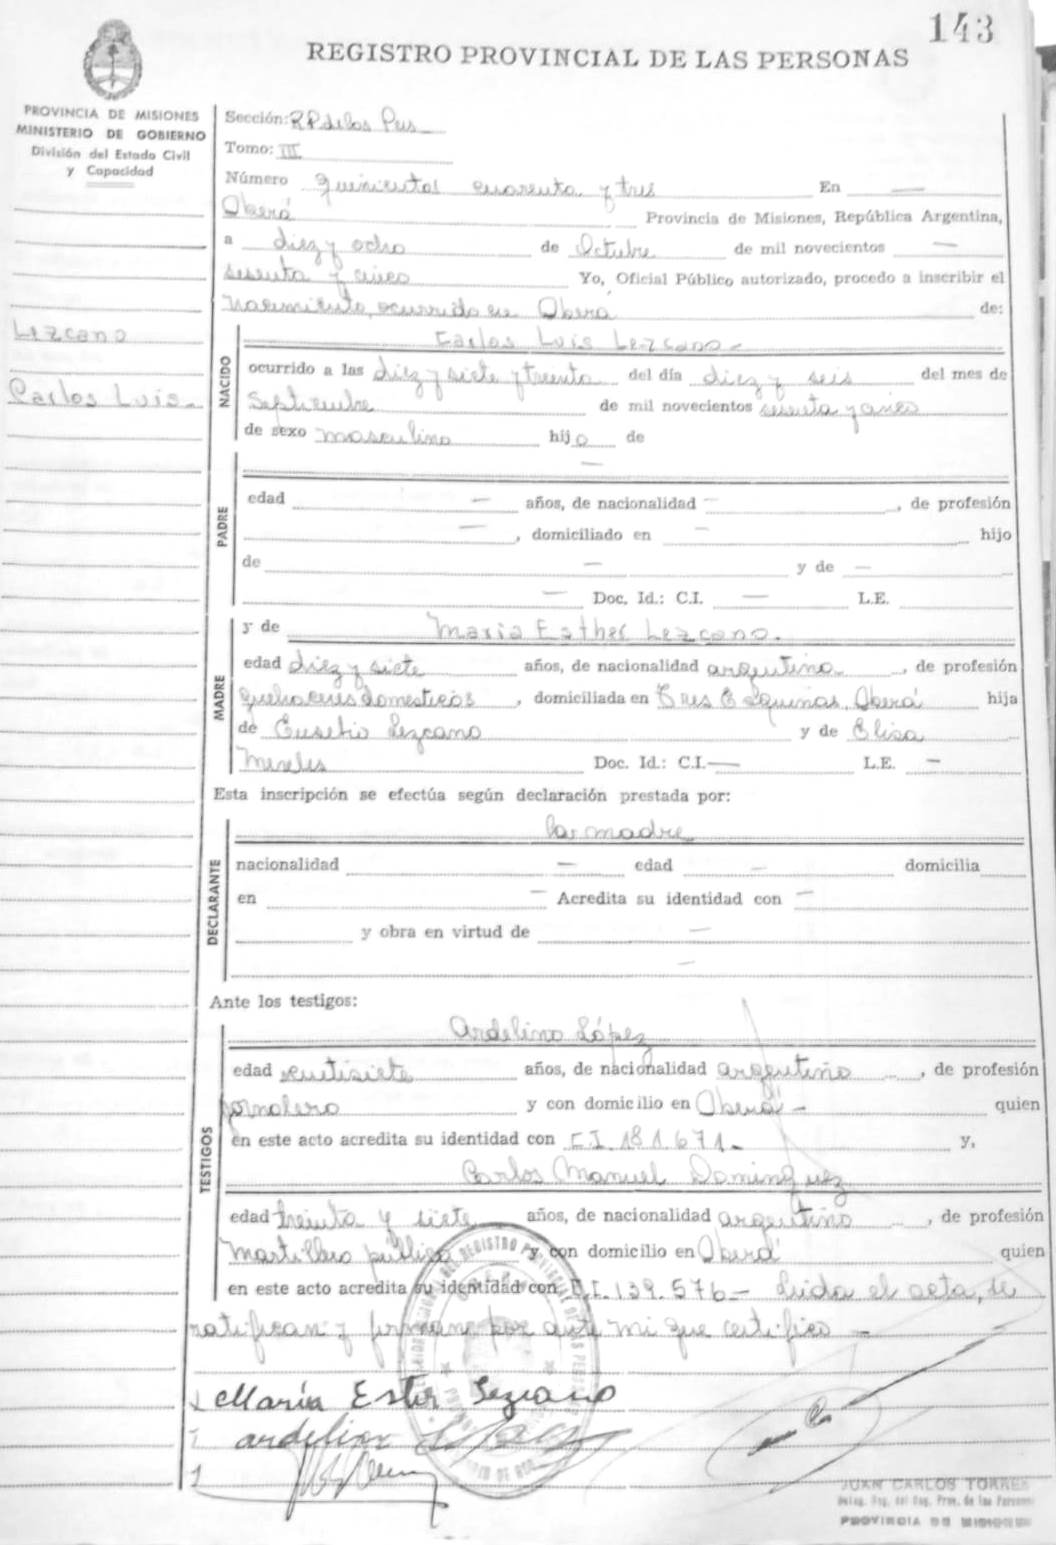 143
REGISTRO PROVINCIAL DE LAS PERSONAS
PROVINCIA DE MISIONES
MINISTERIO DE GOBIERNO
División del Estado Civil
y Capacidad
Lezcano
Carlos Luis.-
Sección: R.P. de las Pers
Tomo: III
Número quinientos cuarenta y tres En —
Oberá Provincia de Misiones, República Argentina,
a diez y ocho de Octubre de mil novecientos —
sesenta y cinco Yo, Oficial Público autorizado, procedo a inscribir el
nacimiento, ocurrido en Oberá de:
NACIDO
Carlos Luis Lezcano-
ocurrido a las diez y siete y treinta del día diez y seis del mes de
Septiembre de mil novecientos sesenta y cinco
de sexo masculino hijo de
PADRE
—
edad — años, de nacionalidad — , de profesión
— , domiciliado en — hijo
de — y de —
— Doc. Id.: C.I. — L.E.
MADRE
y de Maria Esther Lezcano.
edad diez y siete años, de nacionalidad argentina , de profesión
quehaceres domesticos , domiciliada en Tres Esquinas, Oberá hija
de Eusebio Lezcano y de Elisa
Meneles Doc. Id.: C.I. — L.E. —
Esta inscripción se efectúa según declaración prestada por:
DECLARANTE
la madre
nacionalidad — edad — domicilia
en — Acredita su identidad con —
y obra en virtud de —
—
Ante los testigos:
TESTIGOS
Ardelino López
edad ventisiete años, de nacionalidad argentino , de profesión
jornalero y con domicilio en Oberá - quien
en este acto acredita su identidad con C.I. 181.671- y,
Carlos Manuel Dominguez
edad treinta y siete años, de nacionalidad argentino , de profesión
Martillero público y con domicilio en Oberá quien
en este acto acredita su identidad con C.I. 139.576- Leida el acta, se
ratifican y firman por ante mi que certifico -
Maria Ester Lezcano
ardelino López
JUAN CARLOS TORRES
PROVINCIA DE MISIONES